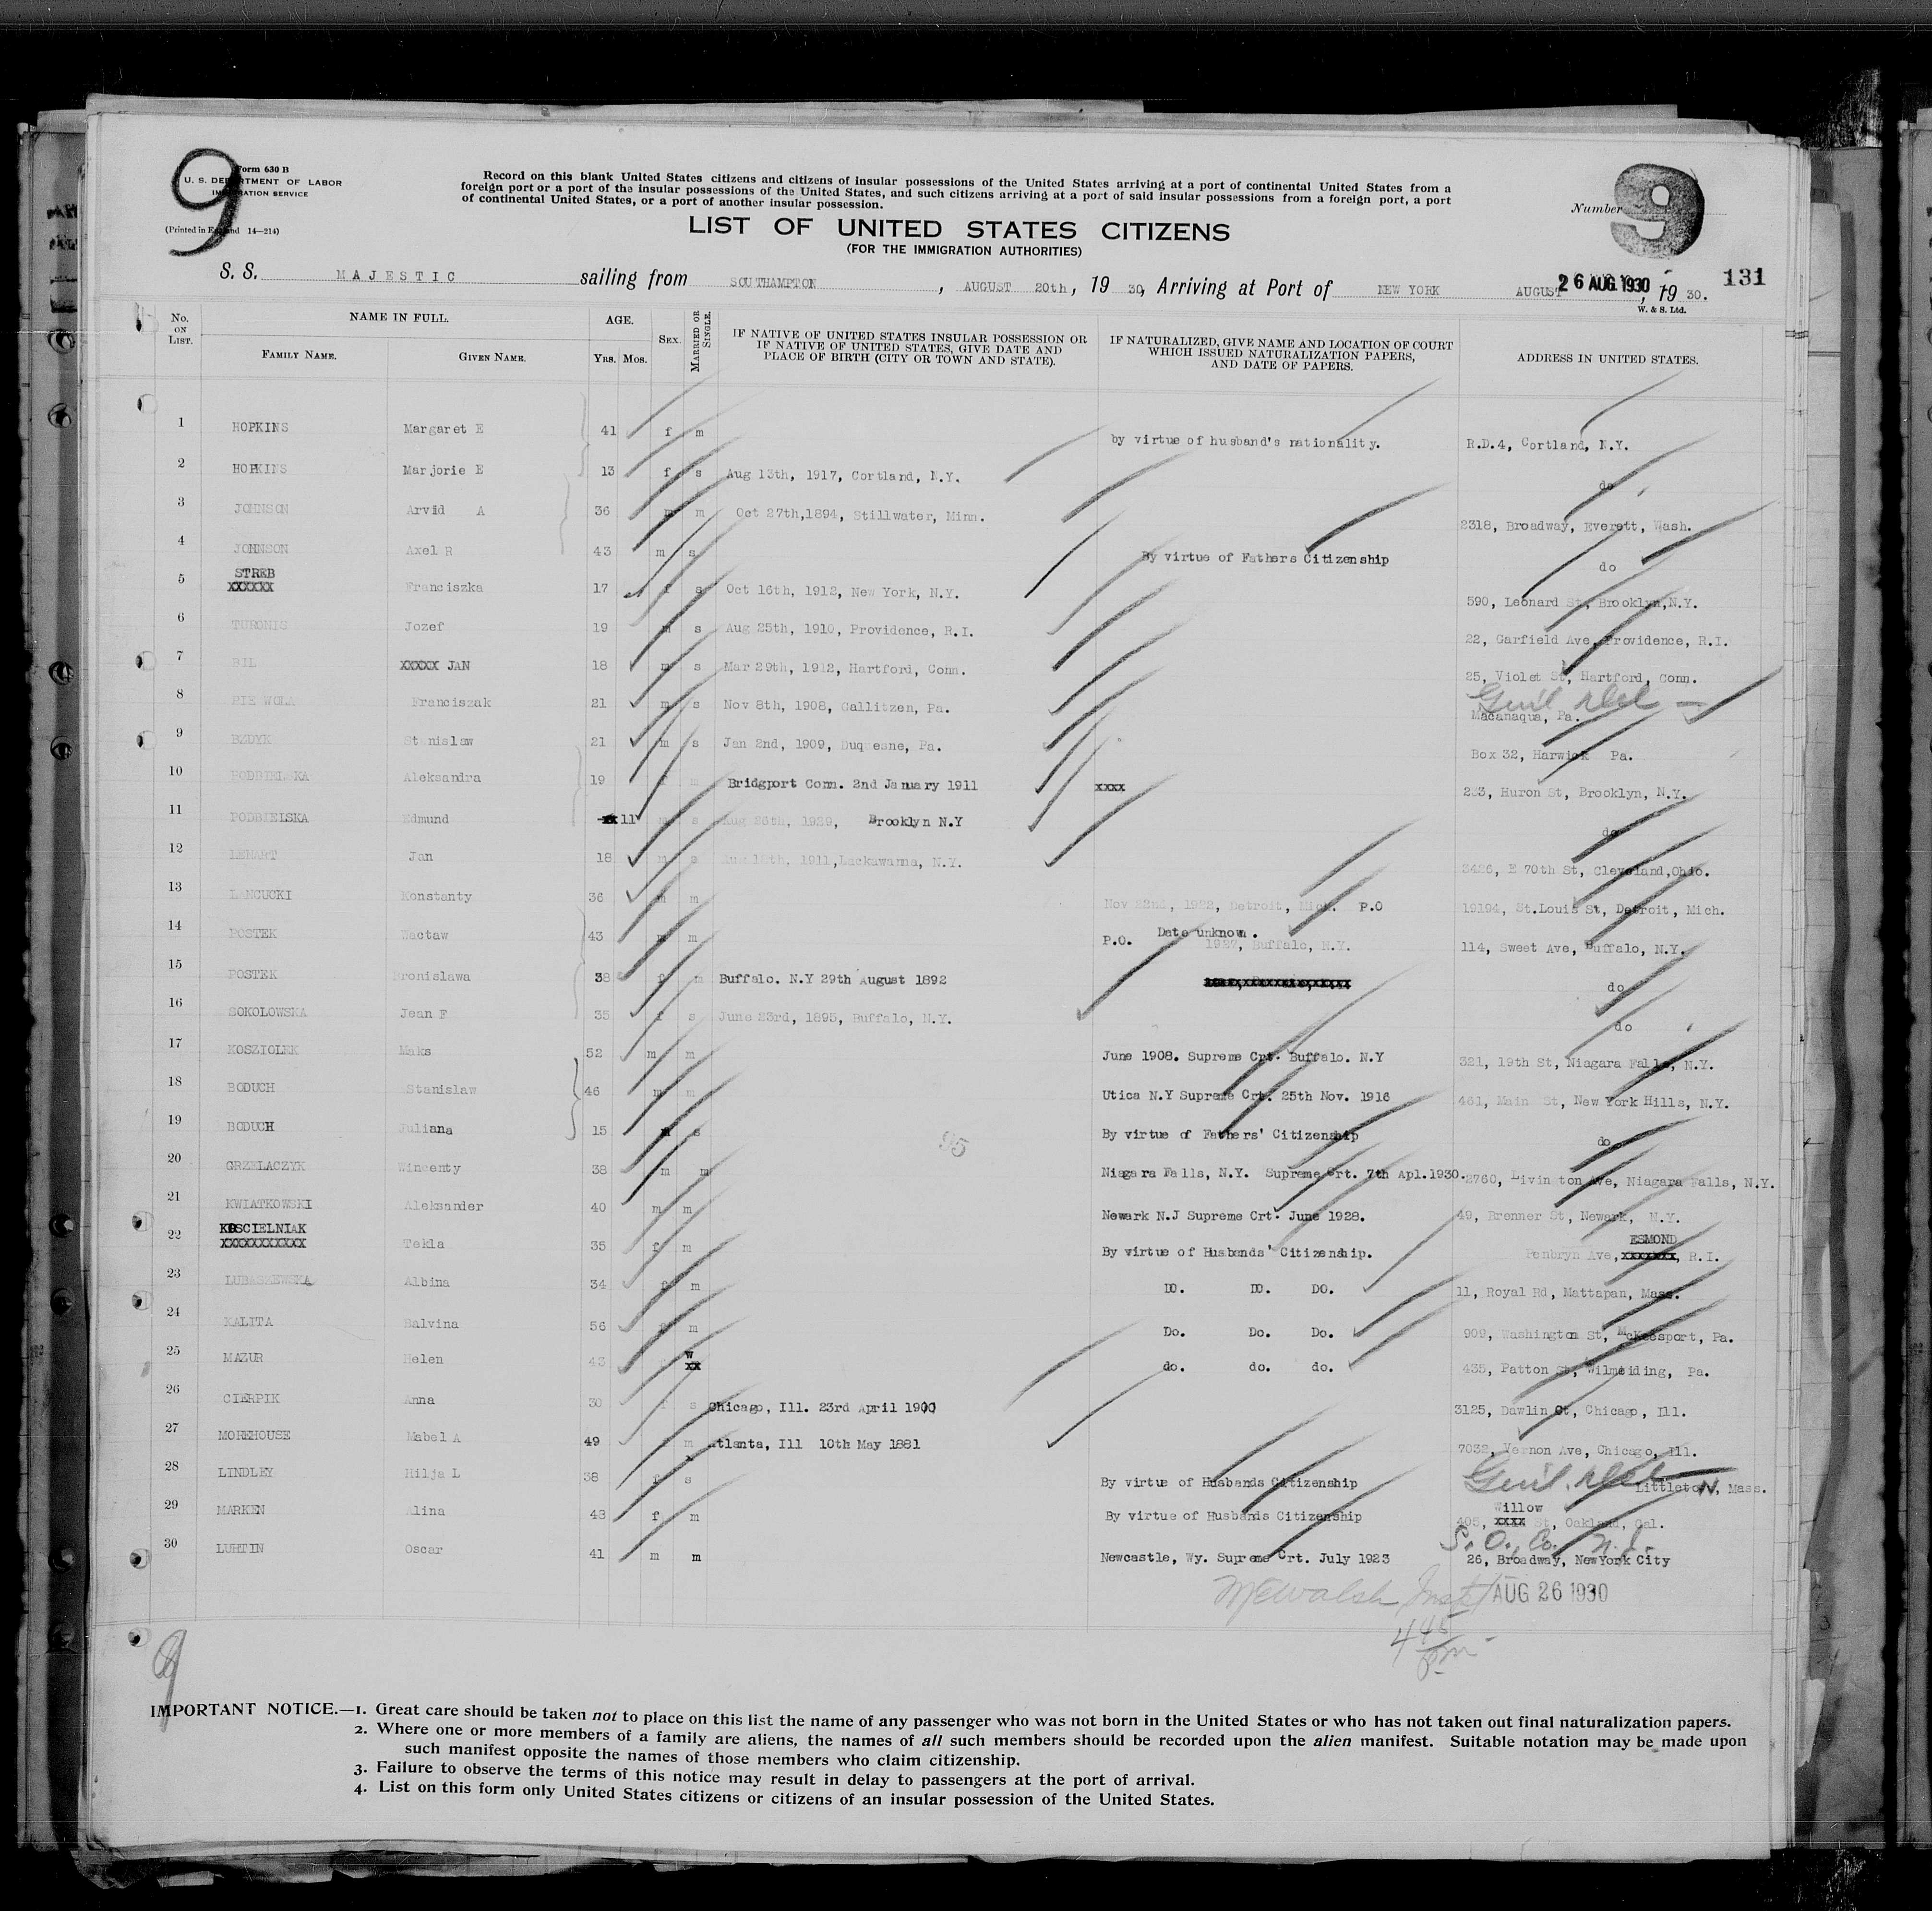 9
Form 630 B
U. S. DEPARTMENT OF LABOR
IMMIGRATION SERVICE
(Printed in England 14—214)
Record on this blank United States citizens and citizens of insular possessions of the United States arriving at a port of continental United States from a
foreign port or a port of the insular possessions of the United States, and such citizens arriving at a port of said insular possessions from a foreign port, a port
of continental United States, or a port of another insular possession.
LIST OF UNITED STATES CITIZENS
(FOR THE IMMIGRATION AUTHORITIES)
Number 9
131
S. S. MAJESTIC sailing from SOUTHAMPTON, AUGUST 20th, 1930, Arriving at Port of NEW YORK AUGUST 26 AUG. 1930, 1930.
W. & S. Ltd.
No. ON LIST. NAME IN FULL. FAMILY NAME. GIVEN NAME. AGE. YRS. MOS. SEX. MARRIED OR SINGLE. IF NATIVE OF UNITED STATES INSULAR POSSESSION OR IF NATIVE OF UNITED STATES, GIVE DATE AND PLACE OF BIRTH (CITY OR TOWN AND STATE). IF NATURALIZED, GIVE NAME AND LOCATION OF COURT WHICH ISSUED NATURALIZATION PAPERS, AND DATE OF PAPERS. ADDRESS IN UNITED STATES.
1 HOPKINS Margaret E 41 f m by virtue of husband's nationality. R.D.4, Cortland, N.Y.
2 HOPKINS Marjorie E 13 f s Aug 13th, 1917, Cortland, N.Y. do
3 JOHNSON Arvid A 36 m m Oct 27th,1894, Stillwater, Minn. 2318, Broadway, Everett, Wash.
4 JOHNSON Axel R 43 m s By virtue of Fathers Citizenship do
5 STREB XXXXXX Franciszka 17 f s Oct 16th, 1912, New York, N.Y. 590, Leonard St, Brooklyn,N.Y.
6 TURONIS Jozef 19 m s Aug 25th, 1910, Providence, R.I. 22, Garfield Ave, Providence, R.I.
7 BIL XXXXX JAN 18 m s Mar 29th, 1912, Hartford, Conn. 25, Violet St, Hartford, Conn.
8 Franciszak 21 m s Nov 8th, 1908, Gallitzen, Pa. Macanaqua, Pa.
9 BZDYK Stanislaw 21 m s Jan 2nd, 1909, Duquesne, Pa. Box 32, Harwick Pa.
10 PODBIELSKA Aleksandra 19 f m Bridgport Conn. 2nd January 1911 XXXX 233, Huron St, Brooklyn, N.Y.
11 PODBIELSKA Edmund 11 m s Aug 26th, 1929, Brooklyn N.Y do
12 LENART Jan 18 m s 1911,Lackawanna, N.Y. 3426, E 70th St, Cleveland,Ohio.
13 LANCUCKI Konstanty 36 m m Nov 22nd, 1922, Detroit, Mich. P.O 19194, St.Louis St, Detroit, Mich.
14 POSTEK Wactaw 43 m m P.O. Date unknown. 1927, Buffalo, N.Y. 114, Sweet Ave, Buffalo, N.Y.
15 POSTEK Bronislawa 38 f m Buffalo. N.Y 29th August 1892 do
16 SOKOLOWSKA Jean F 35 f s June 23rd, 1895, Buffalo, N.Y. do
17 KOSZIOLEK Maks 52 m m June 1908. Supreme Crt. Buffalo. N.Y 321, 19th St, Niagara Falls, N.Y.
18 BODUCH Stanislaw 46 m m Utica N.Y Supreme Crt. 25th Nov. 1916 461, Main St, New York Hills, N.Y.
19 BODUCH Juliana 15 s By virtue of Fathers' Citizenship do
95
20 GRZELACZYK Wincenty 38 m m Niagara Falls, N.Y. Supreme Crt. 7th Apl.1930. 2760, Livington Ave, Niagara Falls, N.Y.
21 KWIATKOWSKI Aleksander 40 m m Newark N.J Supreme Crt. June 1928. 49, Brenner St, Newark, N.Y.
22 KOSCIELNIAK XXXXXXXXXXX Tekla 35 f m By virtue of Husbands' Citizenship. Penbryn Ave, ESMOND XXXXXXX, R.I.
23 LUBASZEWSKA Albina 34 f m DO. DO. DO. 11, Royal Rd, Mattapan, Mass.
24 KALITA Balvina 56 f m Do. Do. Do. 909, Washington St, McKeesport, Pa.
25 MAZUR Helen 43 w XX do. do. do. 435, Patton St, Wilmeiding, Pa.
26 CIERPIK Anna 30 f s Chicago, Ill. 23rd April 1900 3125, Dawlin Ct, Chicago, Ill.
27 MOREHOUSE Mabel A 49 m Atlanta, Ill 10th May 1881 7032, Vernon Ave, Chicago, Ill.
28 LINDLEY Hilja L 38 f s By virtue of Husbands Citizenship Littleton, Mass.
29 MARKEN Alina 43 f m By virtue of Husbands Citizenship 405, Willow XXXX St, Oakland, Cal.
S. O. Co. N.J.
30 LUHTIN Oscar 41 m m Newcastle, Wy. Supreme Crt. July 1923 26, Broadway, NewYork City
AUG 26 1930
4 45 pm
9
IMPORTANT NOTICE.—1. Great care should be taken not to place on this list the name of any passenger who was not born in the United States or who has not taken out final naturalization papers.
2. Where one or more members of a family are aliens, the names of all such members should be recorded upon the alien manifest. Suitable notation may be made upon
such manifest opposite the names of those members who claim citizenship.
3. Failure to observe the terms of this notice may result in delay to passengers at the port of arrival.
4. List on this form only United States citizens or citizens of an insular possession of the United States.